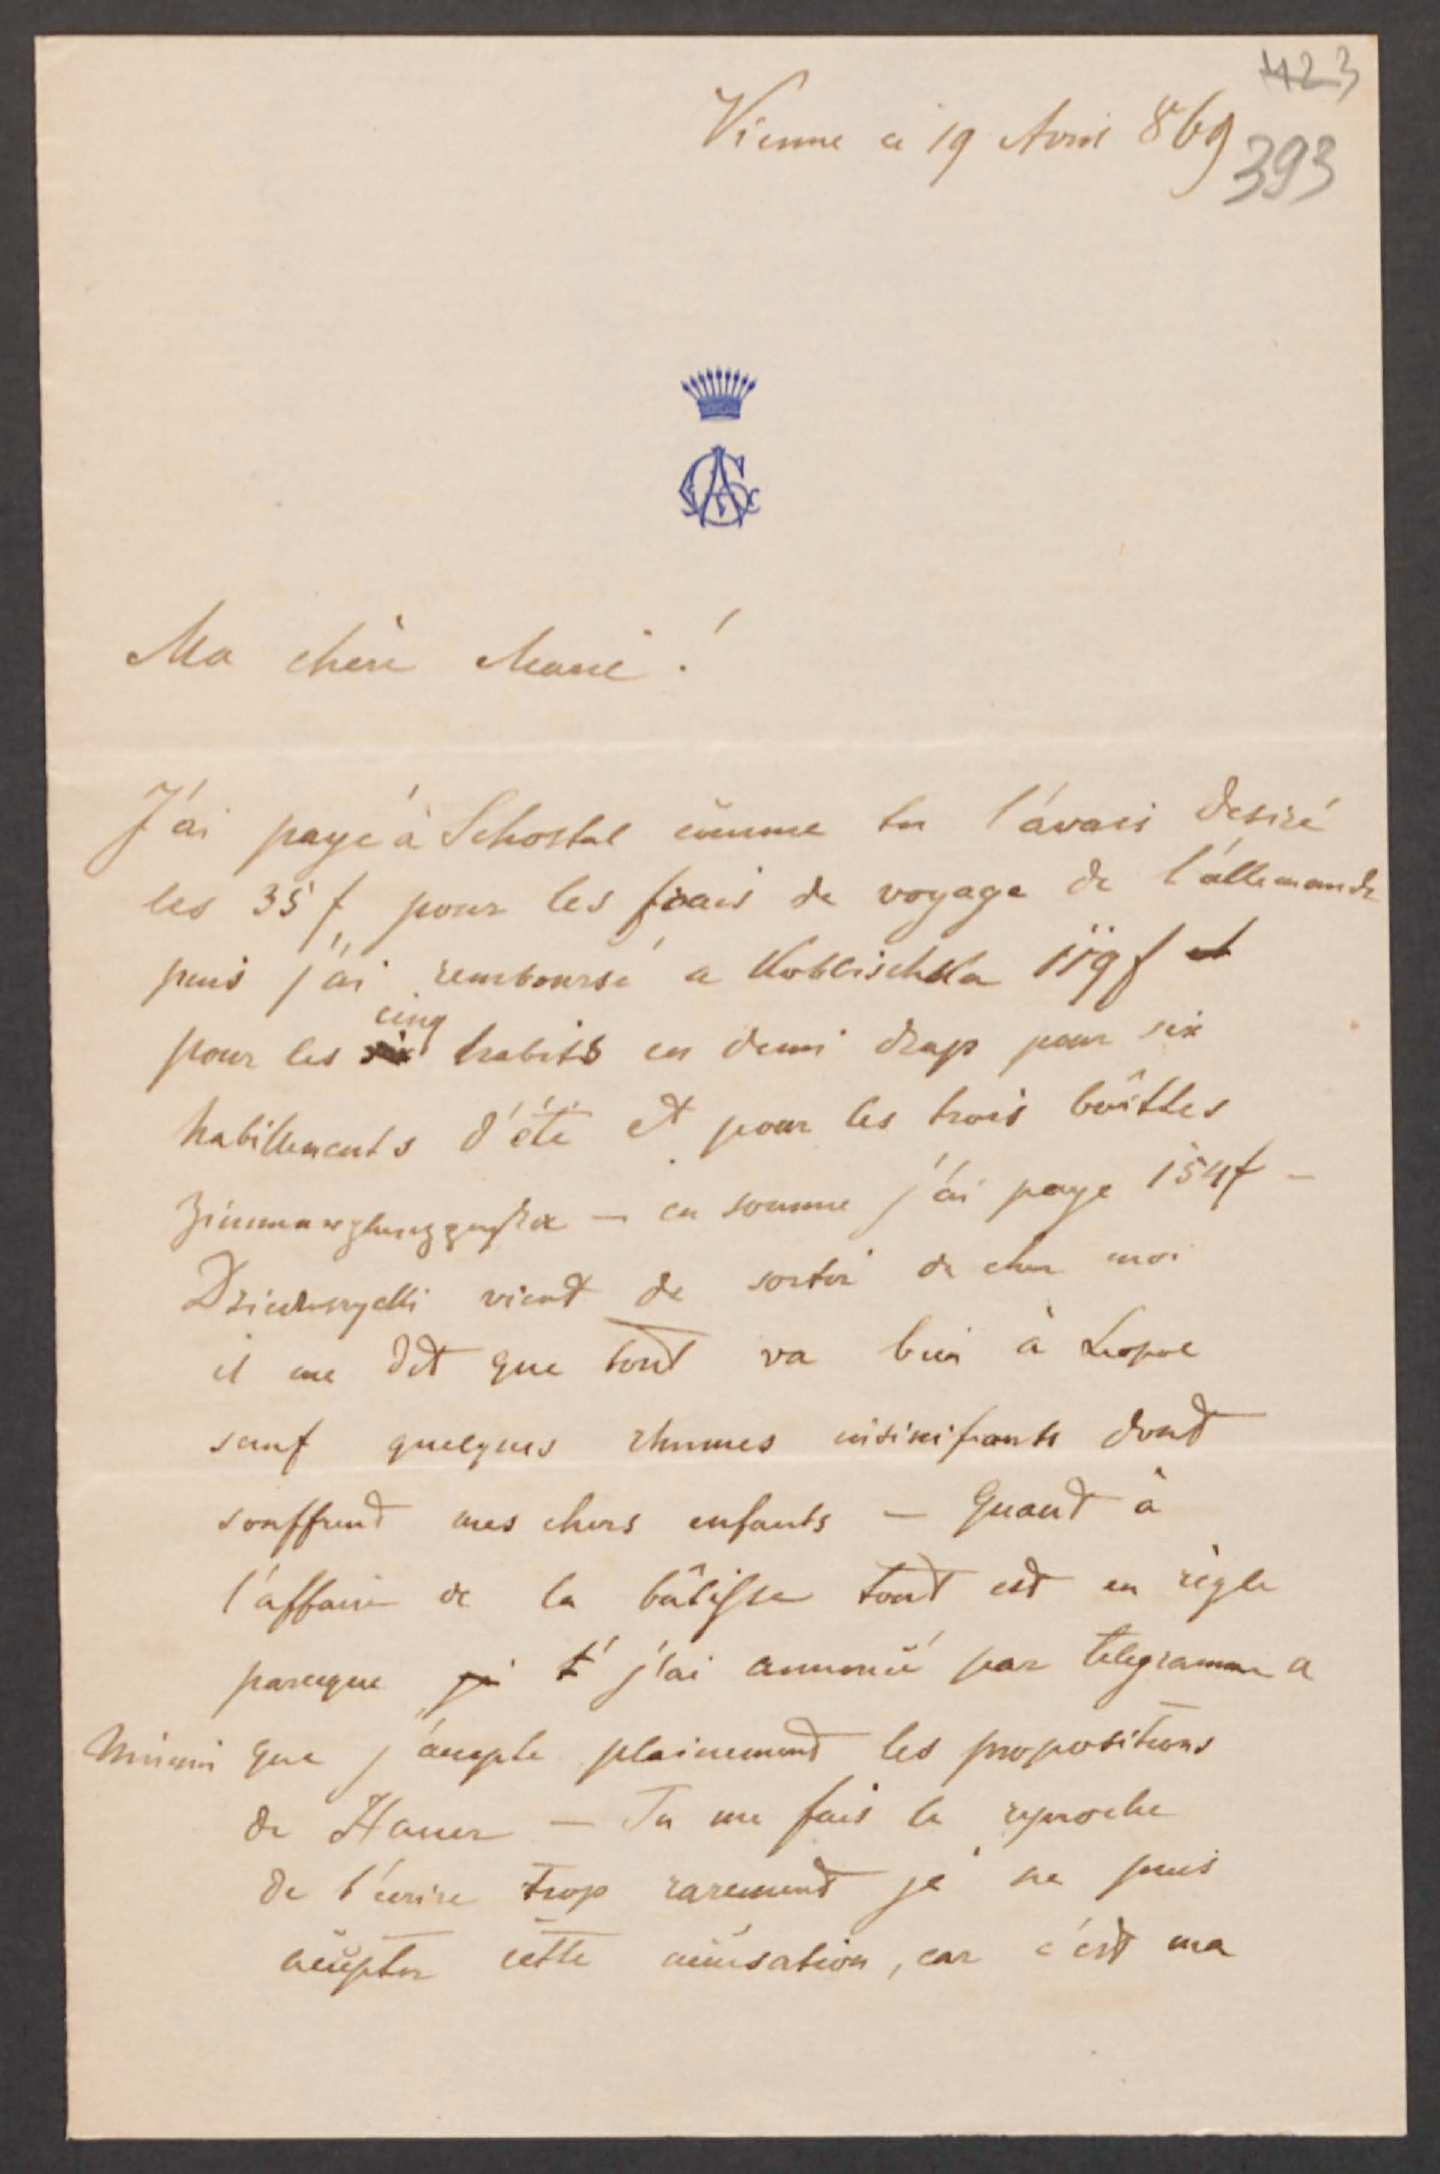 423
Vienne ce 19 Avril 869
393
Ma chère Marie !
J'ai payé à Schostal cōmme tu l'avais desiré
les 35 f pour les frais de voyage de l'allemande
puis j'ai remboursé a 119 f et
pour les six cinq habits en demi drap pour six
habillements d'été et pour les trois boîttes
— en somme j'ai paye 154 f —
vient de sortir de chez moi
il me dit que tout va bien à Leopol
sauf quelques rhumes insinifiants dont
souffrent mes chers enfants — Quant à
l'affaire de la bâtisse tout est en règle
parceque j' t' j'ai annoncé par telegramme a
Mimi que j'accepte plainement les propositions
de Hauer — Tu me fais le reproche
de t'écrire trop rarement je ne puis
accepter cette accusation, car c'est ma